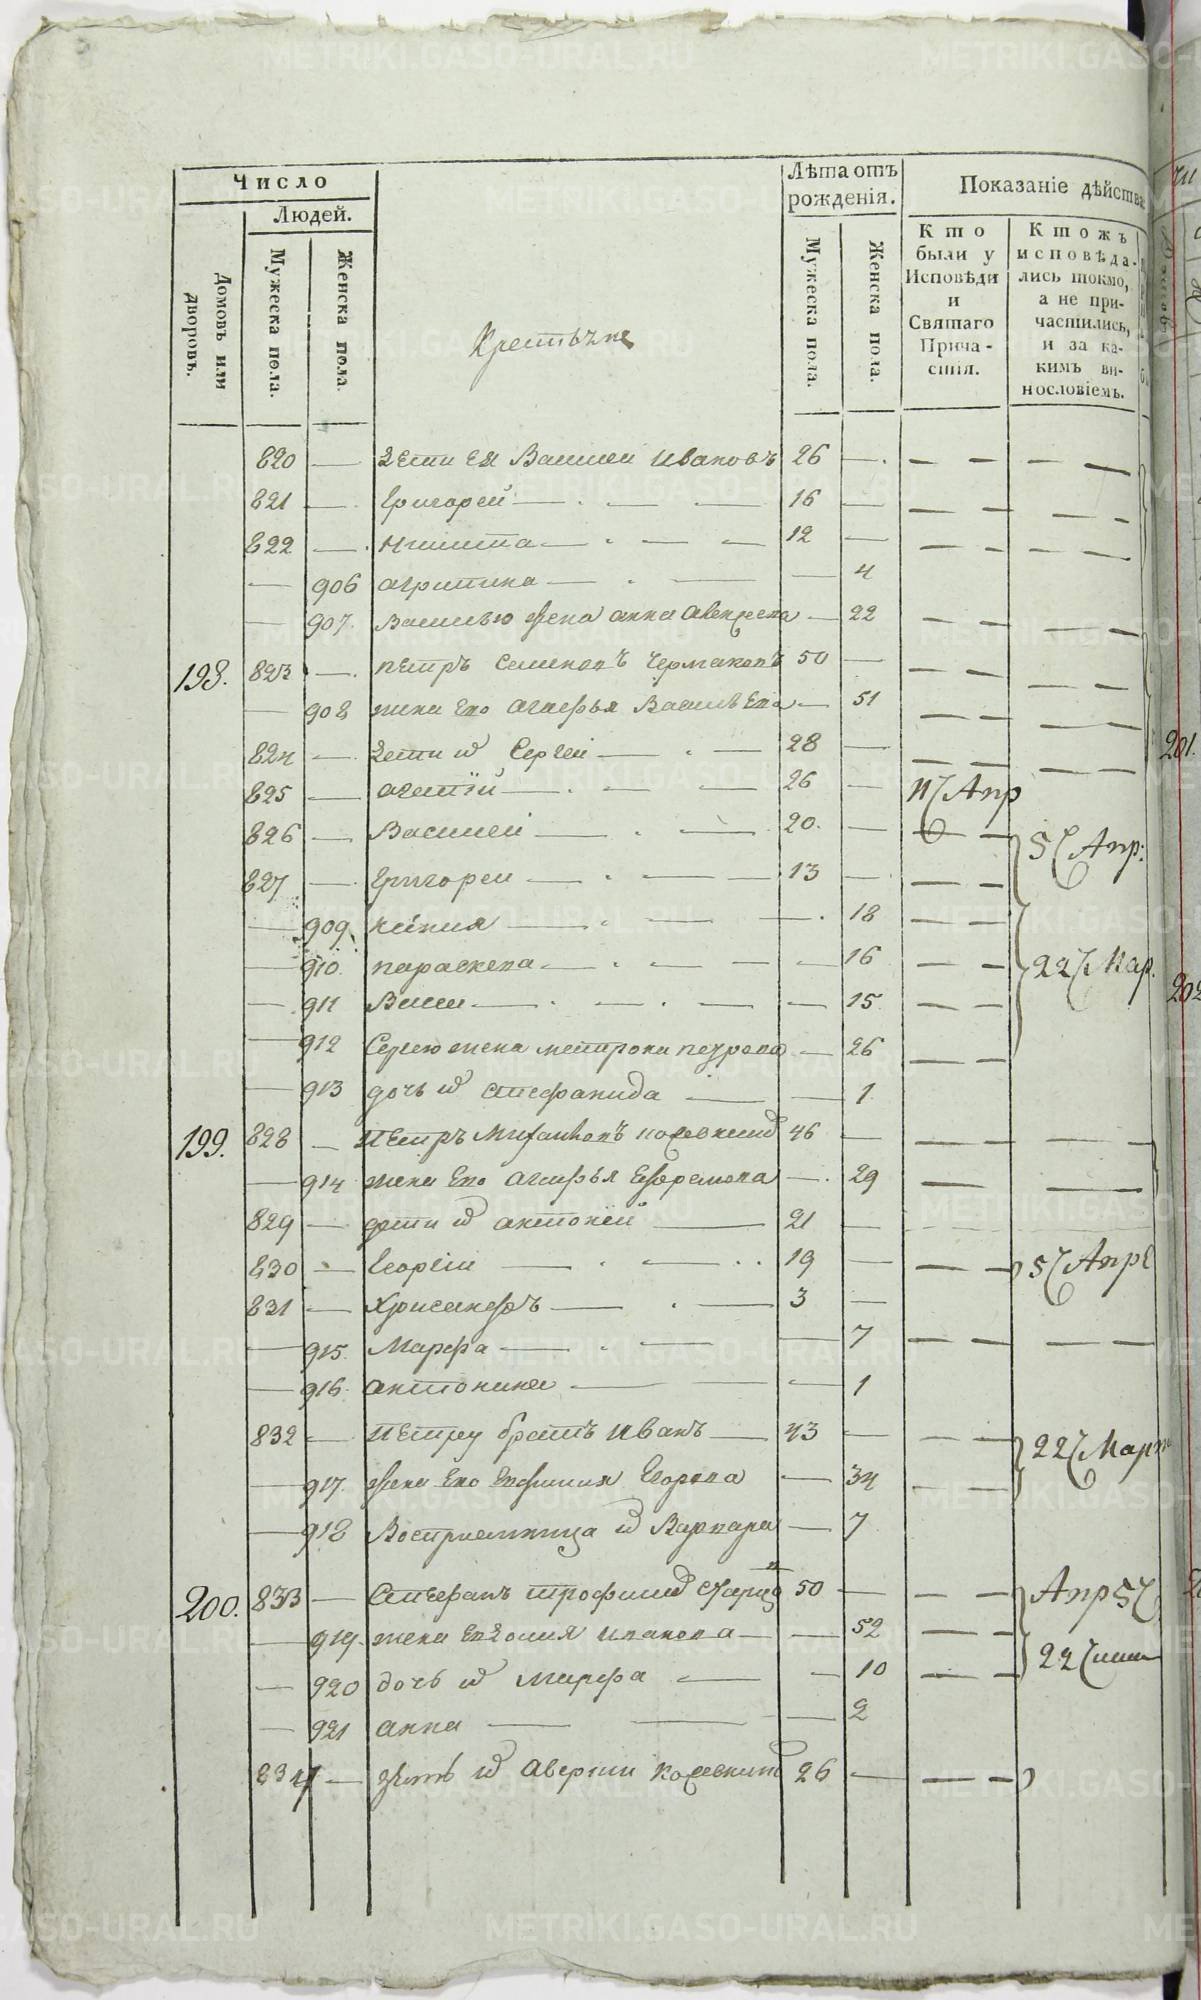 Число
Людей.
Домовъ или дворовъ.
Мужеска пола.
Женска пола.
Крестьяне
Лѣта отъ рожденія.
Мужеска пола.
Женска пола.
Показаніе дѣйства
Кто были у Исповѣди и Святаго Причастія.
Ктожъ исповѣдались токмо, а не причастились, и за какимъ винословіемъ.
820 — дети ея Василеи Ивановъ 26 —
821 — Григореи — 16 —
822 — Никита — 12 —
— 906 агрипина — 4
— 907. Василью жена анна — 22
198. 823 — петръ Семеновъ Чермаковъ 50 —
— 908 жена Ево агафья Васильева — 51
824 — дети Сергеи — 28 —
825 — — 26 — 11 Апр
826 — Василеи — 20. — 5 Апр:
827 — Григореи — 13 —
— 909 — 18
— 910. параскева — 16 22 Мар.
— 911 — 15
— 912 Сергею жена матрона петрова — 26
— 913 дочь стефанида — 1
199. 828 — Петръ 46 —
— 914 жена Ево агафья Ефремова — 29
829 — дети антоней — 21 —
830 — Георгіи — 19 — 5 Апре
831 — Хрисанфъ — 3 —
— 915. Марфа — 7
— 916 антонина — 1
832 — Петру братъ Иванъ — 43 — 22 Март
— 917. жена Ево Евфимия Егорова — 34
— 918 Воспріемница Варвара — 7
200. 833 — Стефанъ трофимо 50 — Апр 5
— 919. жена Евдокия иванова — 52 22
— 920 дочь Марфа — 10
— 921 анна — 2
834 — зять аверкии 26 —
201.
202